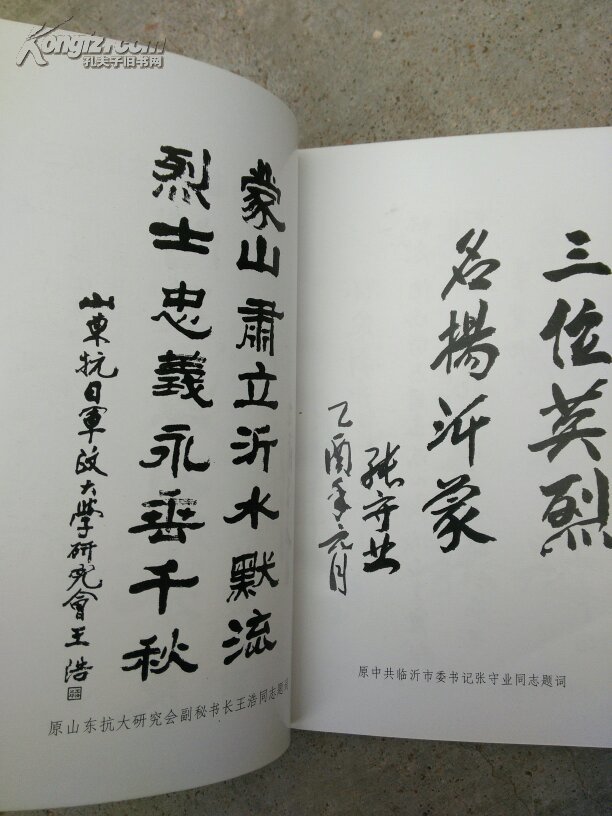 Kongfz.com
孔夫子旧书网
蒙山肃立沂水默流
烈士忠義永垂千秋
山东抗日軍政大学研究會王浩
原山东抗大研究会副秘书长王浩同志题词
三位英烈
名揚沂蒙
乙酉年元月
张守业
原中共临沂市委书记张守业同志题词